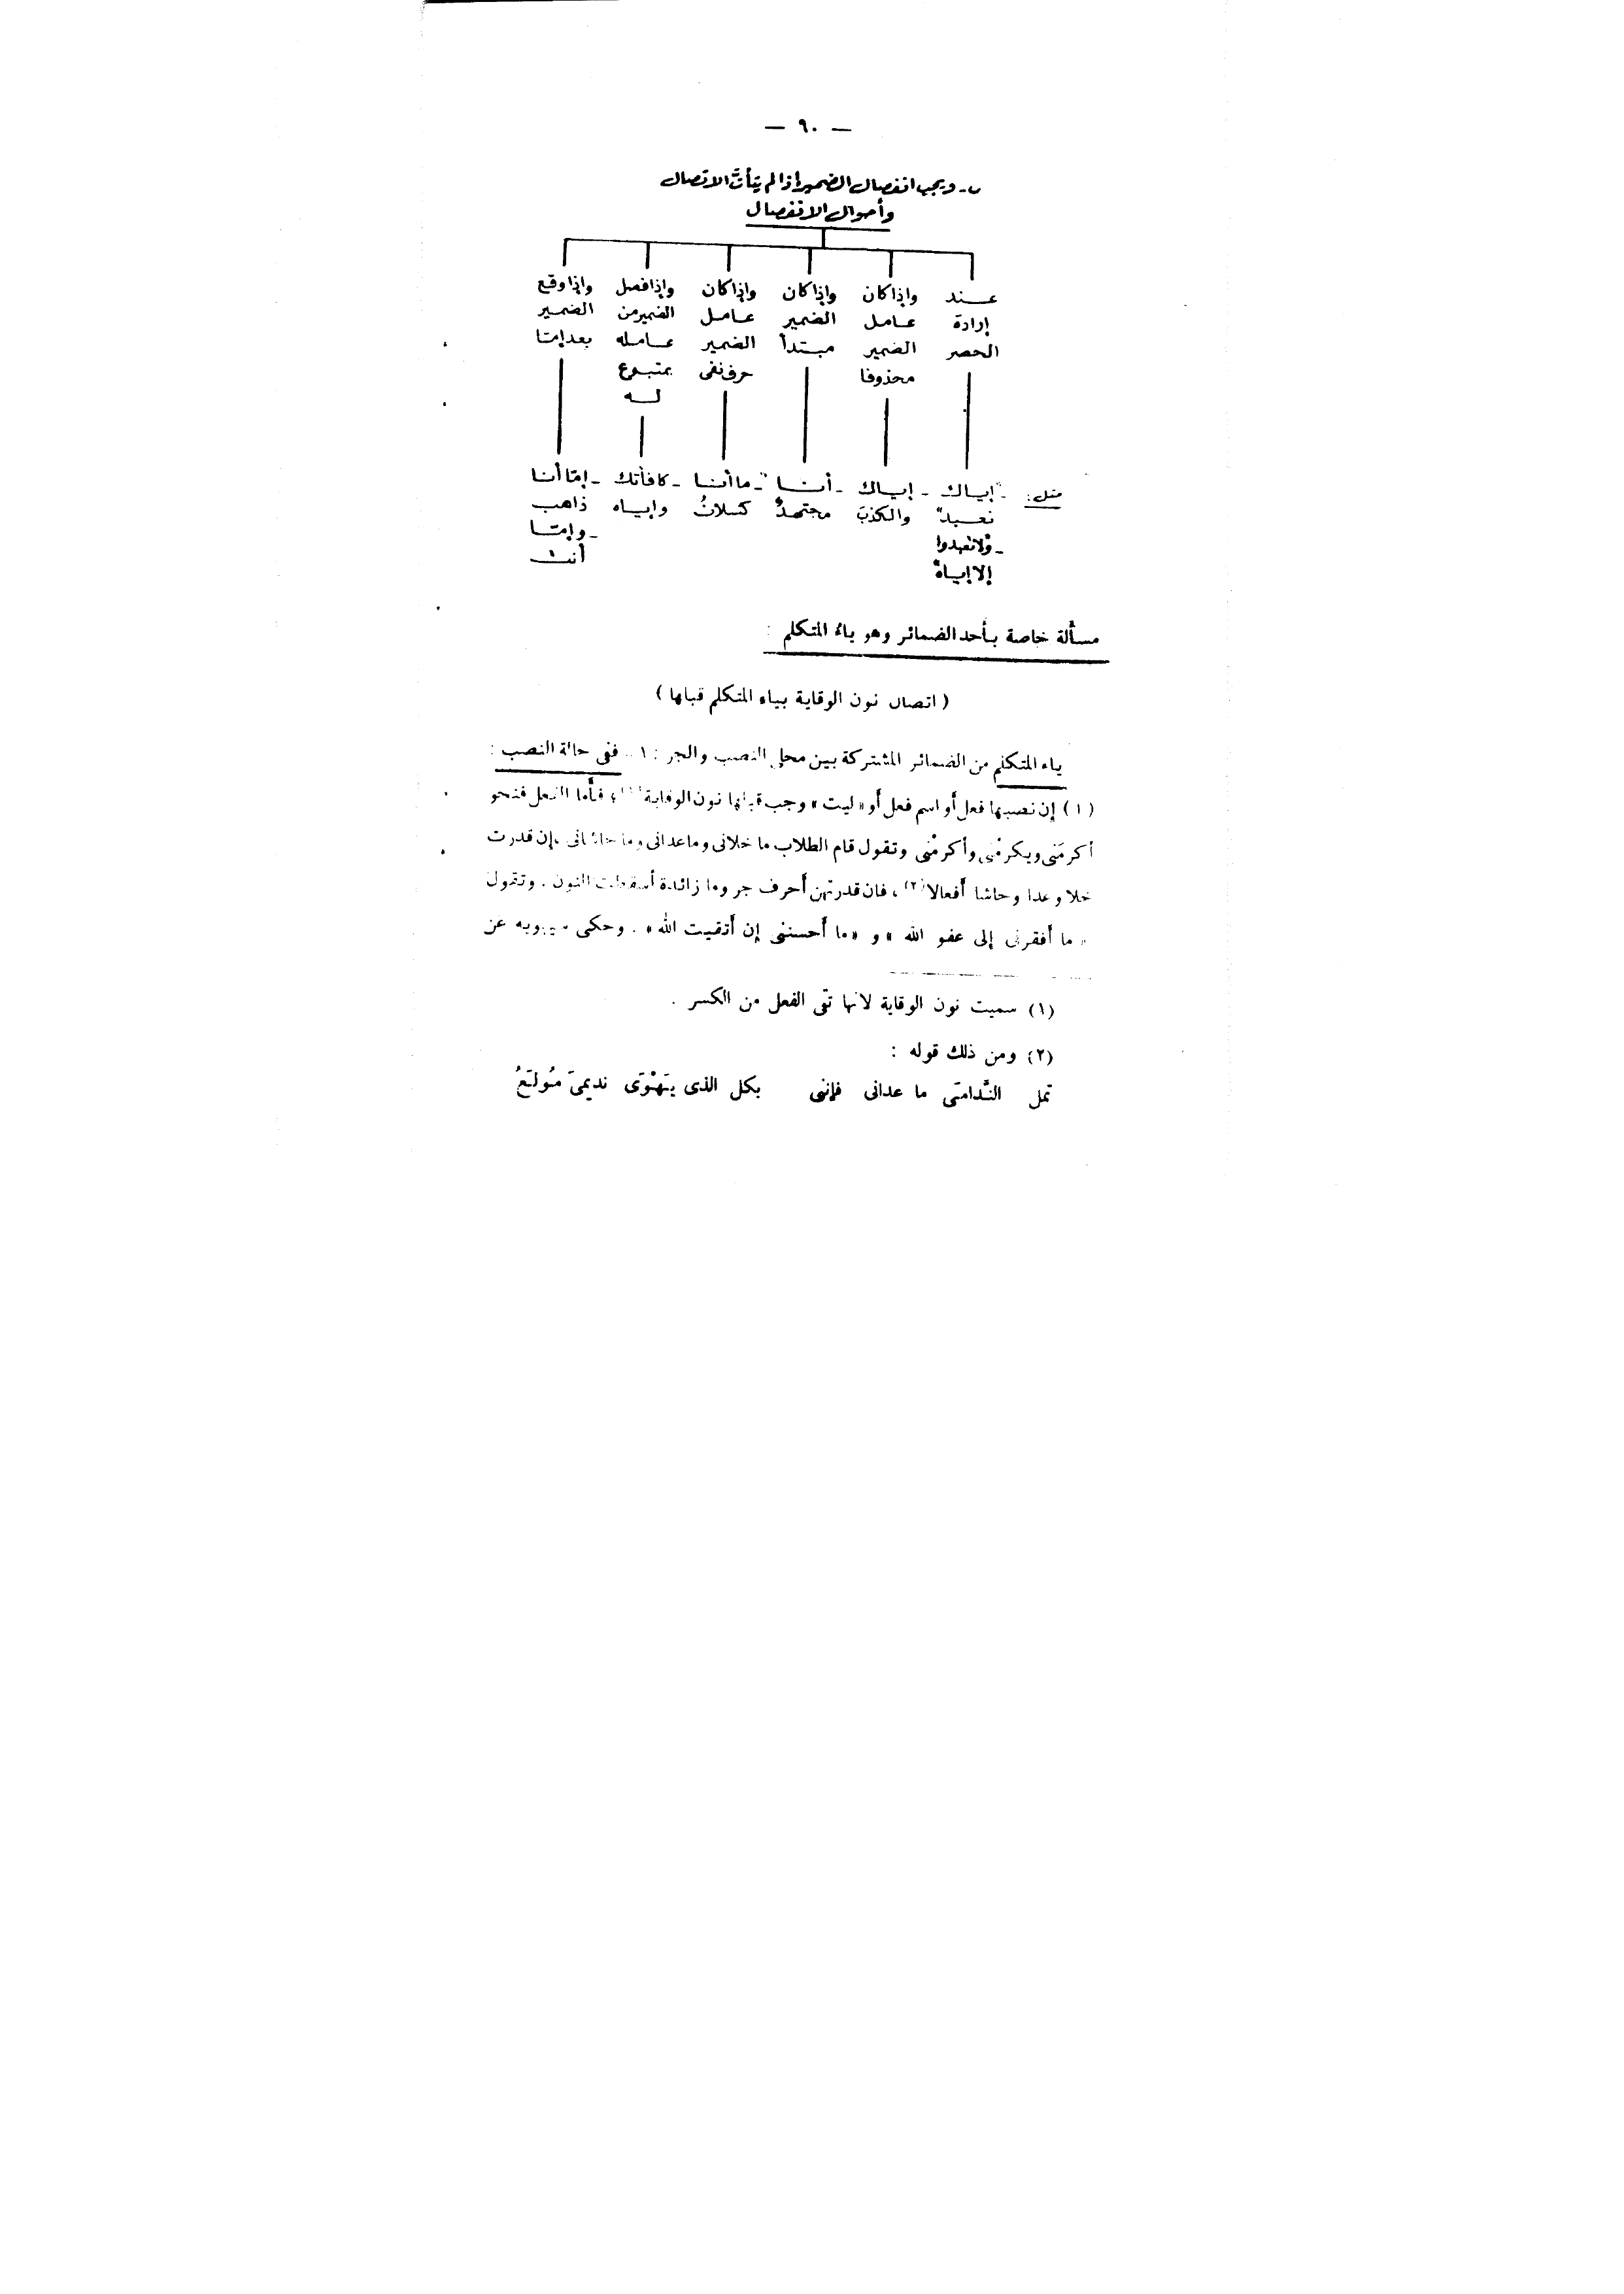 — ٩٠ —
ب- ويجب انفصال الضمير إذا لم يتأتَّ الاتصال
وأحوال الانفصال
عند إرادة الحصر
وإذا كان عامل الضمير محذوفا
وإذا كان الضمير مبتدأ
وإذا كان عامل الضمير حرف نفى
وإذا فصل الضمير من عامله بمتبوع له
وإذا وقع الضمير بعد إمّا
مثل:
- "إياك نعبد"
- "ولا تعبدوا إلا إياه"
- إياك والكذبَ
- أنا مجتهدٌ
- ما أنا كسلانُ
- كافأتك وإياه
- إمّا أنا ذاهب
- وإمّا أنت
مسألة خاصة بأحد الضمائر وهو ياء المتكلم :
( اتصال نون الوقاية بياء المتكلم قبلها )
ياء المتكلم من الضمائر المشتركة بين محلى النصب والجر : ١ - ففى حالة النصب :
(١) إن نصبها فعل أو اسم فعل أو «ليت» وجب قبلها نون الوقاية(١) ؛ فأما الفعل فنحو
أكرمَنى ويكرمُنى وأكرمْنى وتقول قام الطلاب ما خلانى وما عدانى وما حاشانى ،إن قدرت
خلا وعدا وحاشا أفعالا(٢) ، فان قدرتهن أحرف جر وما زائدة أسقطت النون . وتقول
«ما أفقرنى إلى عفو الله » و «ما أحسننى إن أتقيت الله» . وحكى سيبويه عن
(١) سميت نون الوقاية لانها تقى الفعل من الكسر .
(٢) ومن ذلك قوله :
تمل النَّدامَى ما عدانى فإننى بكل الذى يَهْوَى نديمىَ مُولَعُ